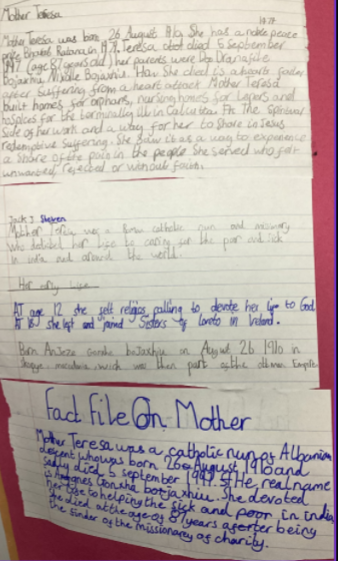 Mother Teresa
1979
Mother Teresa was born 26 August 1910. She has a noble peace
Prize, Bharat Ratana in 1979. Teresa died 5 September
1997. (age 87 years old) her parents were
Bojaxhiu, Nikolle Bojaxhiu. How She died is a heart
after Suffering from a heart attack Mother Teresa
built homes for orphans, nursing homes for lepers and
hospices for the terminally ill in Calcutta. the Spiritual
Side of her work and a way for her to Share in Jesus
redemptive Suffering. She Saw it as a way to experience
a Share of the pain in the people She served who felt
unwanted, rejected or without faith.
Jack J.
Mother Teresa was a Roman catholic nun and missionary
who devoted her life to caring for the poor and sick
in India and around the world.
Her early life
AT age 12 she self religios calling to devote her life to God.
At 18 she left and joined Sisters of loreto in Ireland.
Born Anjeze Gonxhe bojaxhiu on August 26 1910 in
Skopje, macedonia, wich was then part of the Empire
Fact File On Mother
Mother Teresa was a catholic nun of Albanian
descent who was born 26 August 1910 and
sadly died 5 september 1997. He, real name
is Gonxha bojaxhiu. She devoted
her life to helping the sick and poor in india
She died at the age of 87 years aforter being
the finder of the missionarey of charity.